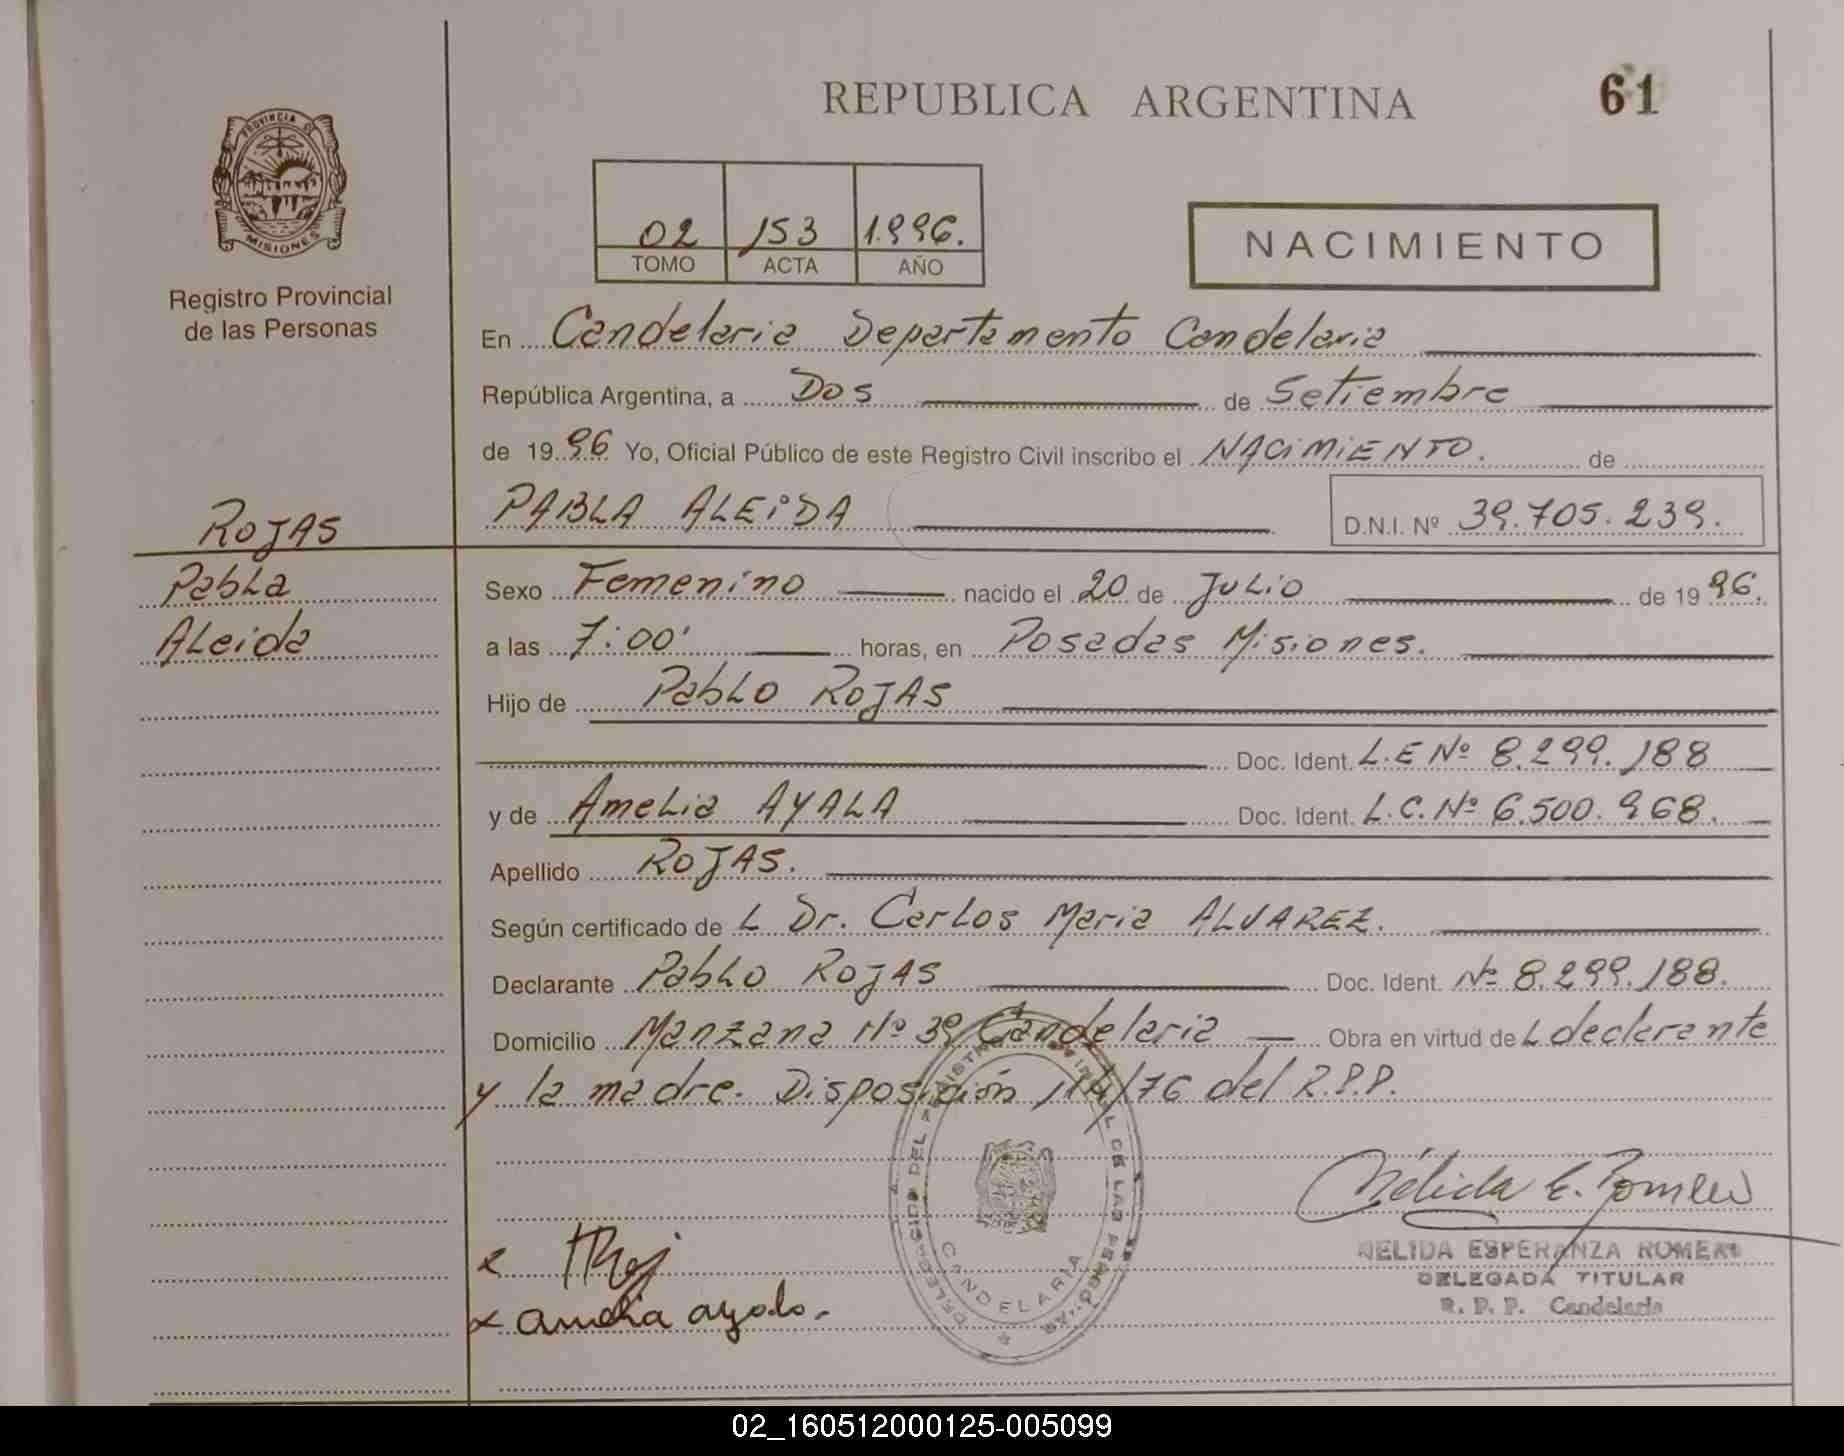 REPUBLICA ARGENTINA
61
PROVINCIA DE
MISIONES
Registro Provincial
de las Personas
02 153 1.996.
TOMO ACTA AÑO
NACIMIENTO
En Candelaria Departamento Candelaria
República Argentina, a Dos de Setiembre
de 1996 Yo, Oficial Público de este Registro Civil inscribo el NACIMIENTO. de
PABLA ALEIDA D.N.I. Nº 39.705.239.
ROJAS
Pabla
ALeida
Sexo Femenino nacido el 20 de JuLio de 1996.
a las 7:00' horas, en Posadas Misiones.
Hijo de PabLo ROJAS
Doc. Ident. L.E Nº 8.299.188
y de AmeLia AYALA Doc. Ident. L.C. Nº 6.500.968.
Apellido ROJAS.
Según certificado de L Dr. CarLos Maria ALVAREZ.
Declarante PabLo ROJAS Doc. Ident. Nº 8.299.188.
Domicilio Manzana Nº 39 Candelaria Obra en virtud de L declarante
y la madre. Disposición 114/76 del R.P.P.
CANDELARIA
Nélida E. Romero
NELIDA ESPERANZA ROMERO
DELEGADA TITULAR
R. P. P. Candelaria
x Amelia ayala.
02_160512000125-005099